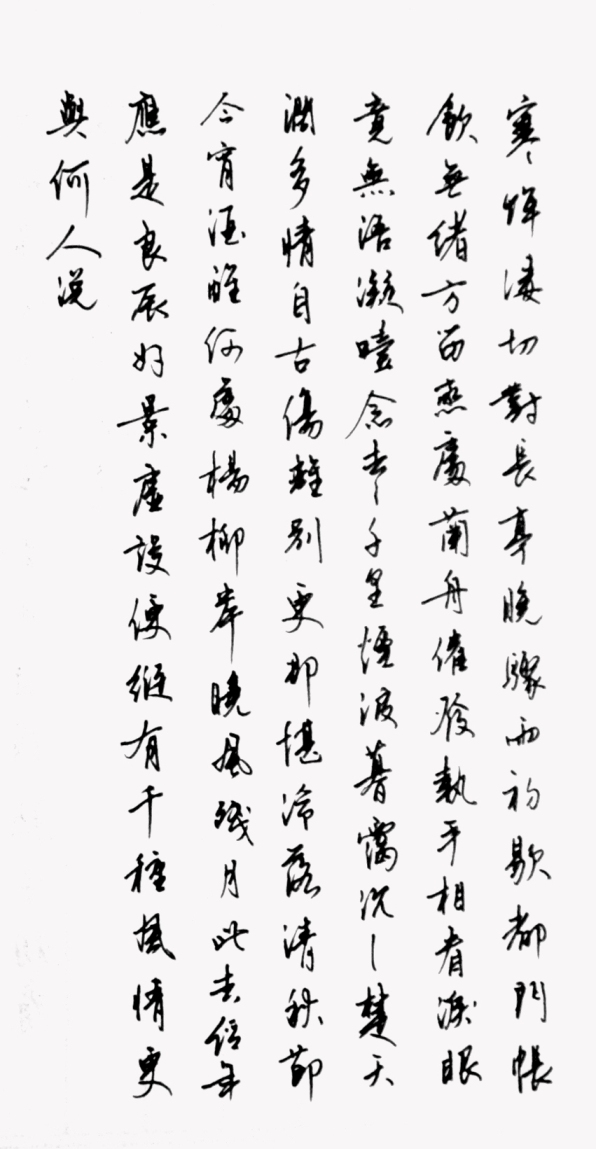 寒蟬凄切對長亭晚驟雨初歇都門帳
飲無緒方留戀處蘭舟催發執手相看淚眼
竟無語凝噎念去々千里煙波暮靄沉々楚天
闊多情自古傷離別更那堪冷落清秋節
今宵酒醒何處楊柳岸曉風殘月此去經年
應是良辰好景虛設便縱有千種風情更
與何人說